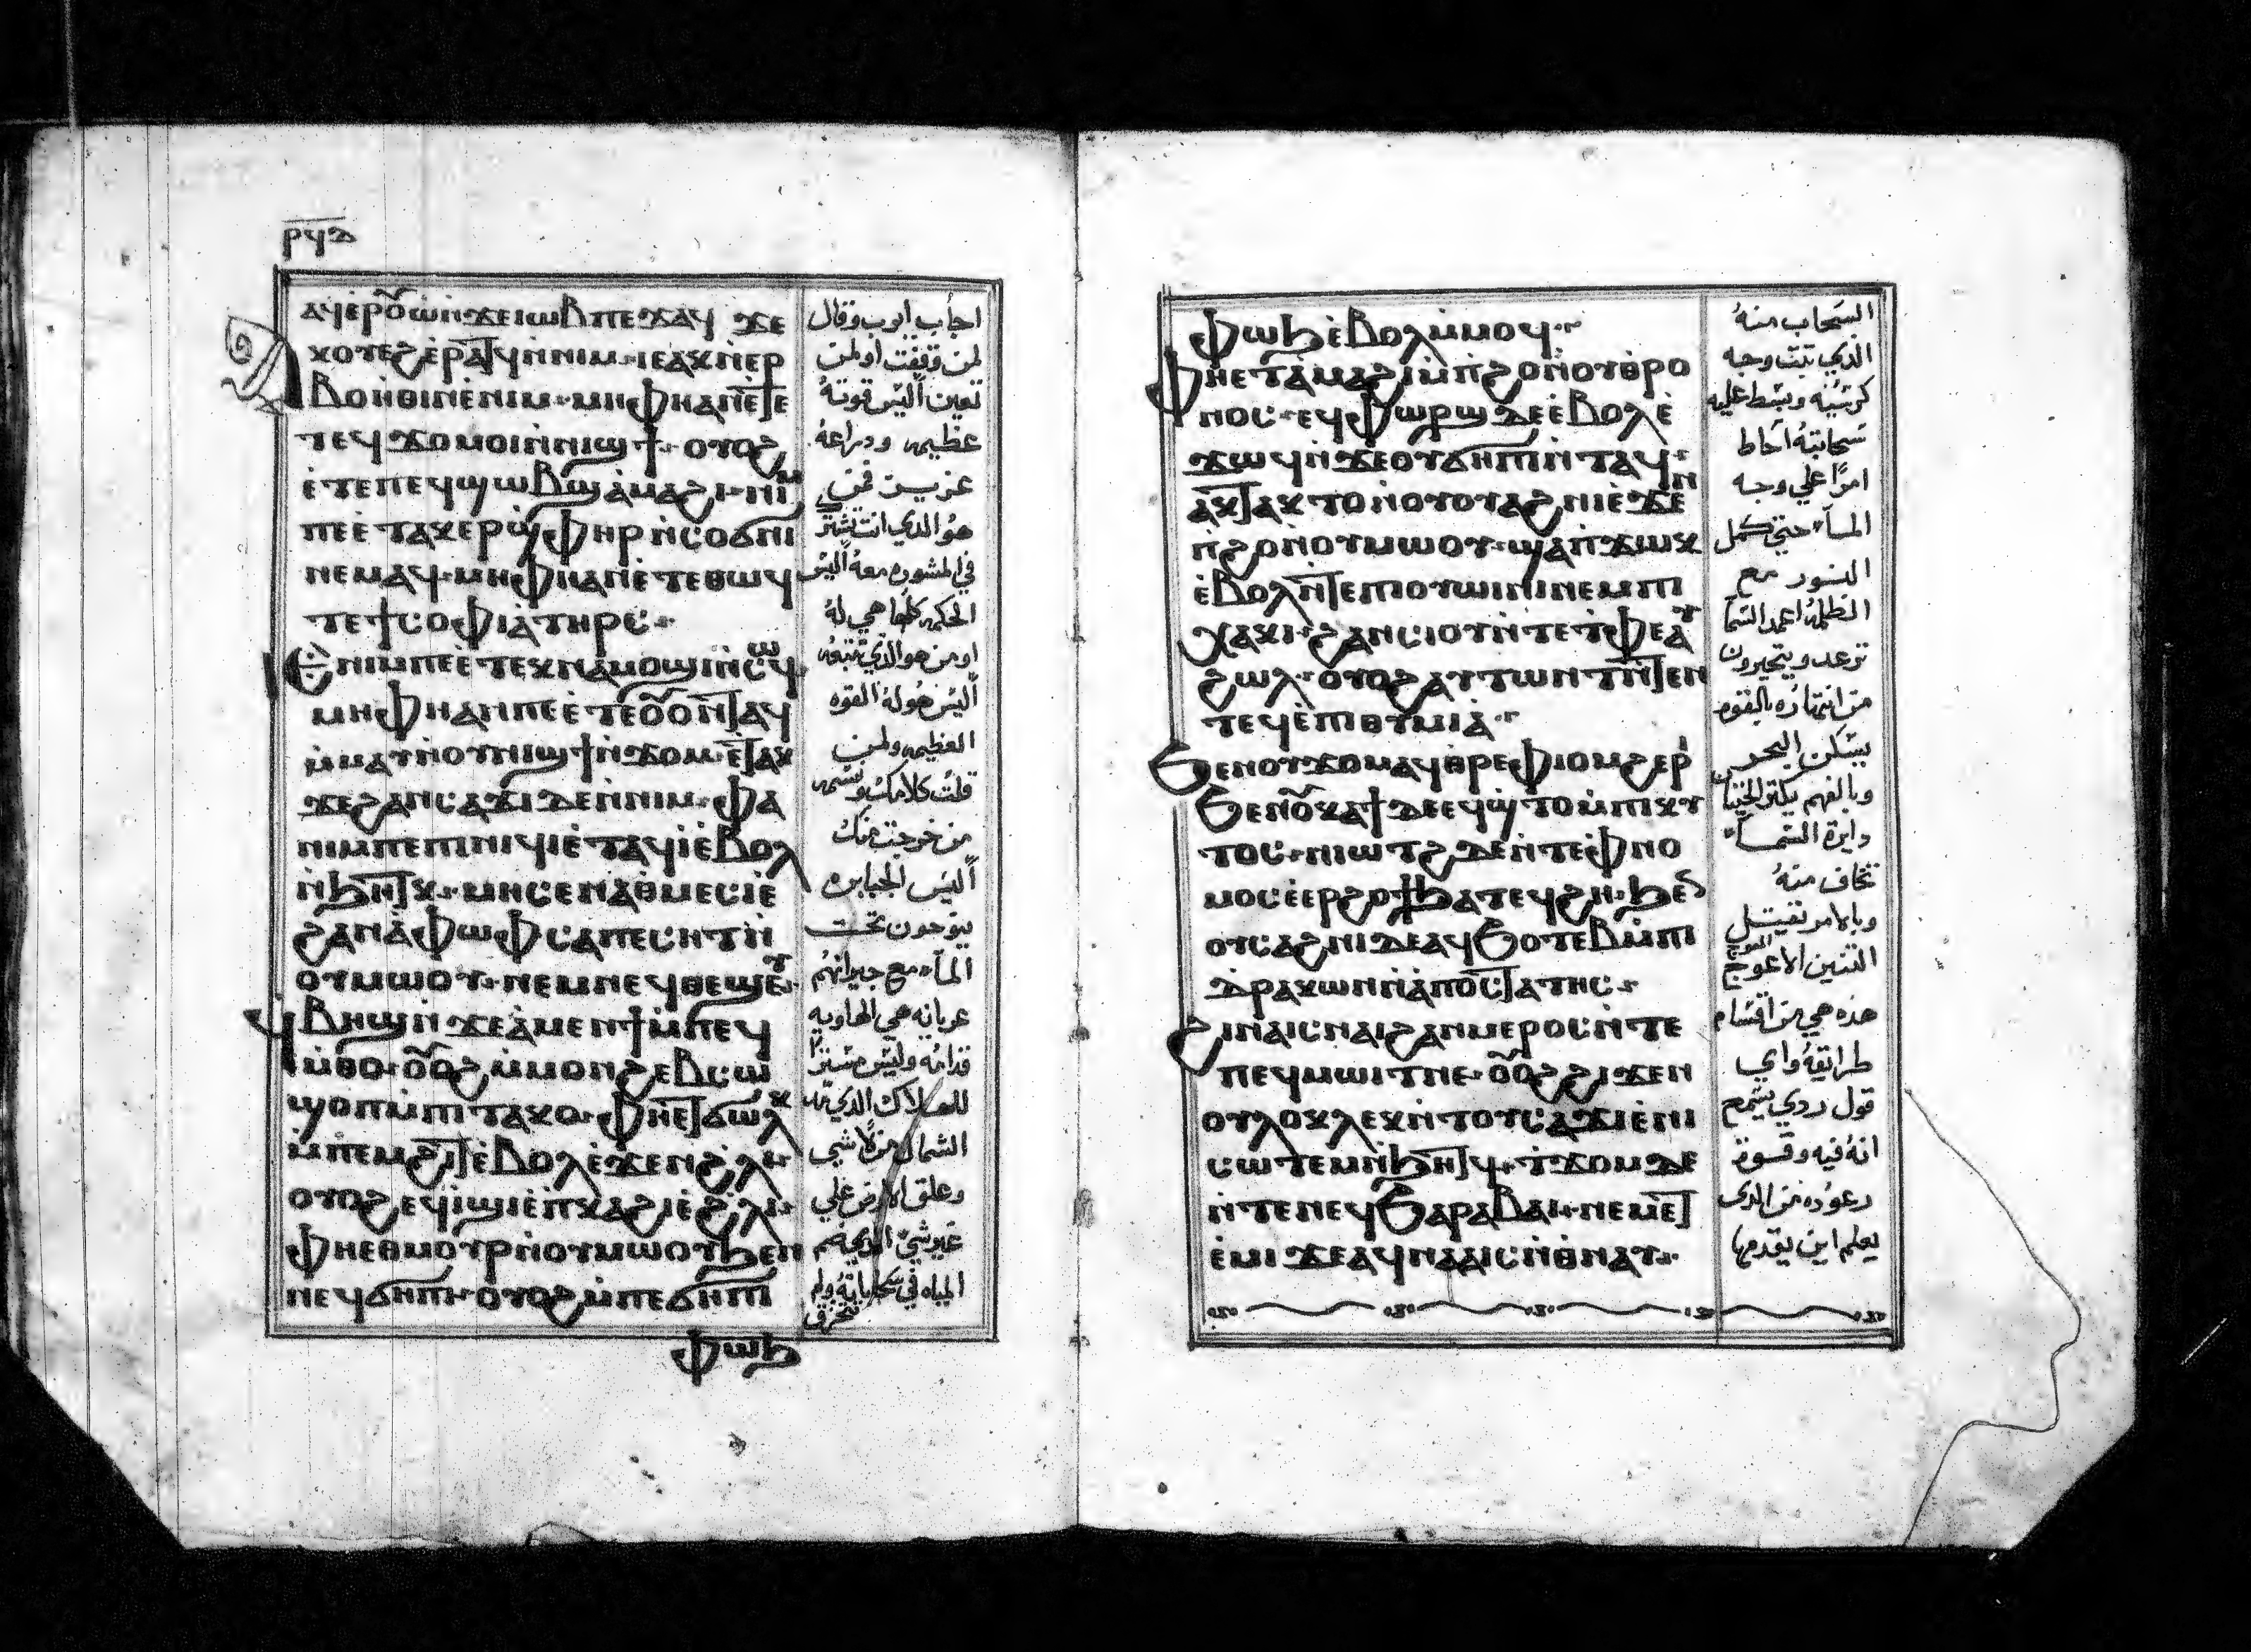 ⲣϥⲇ
ⲁϥⲉⲣⲟⲩⲱ̀ⲛ̀ϫⲉⲓⲱⲃ ⲡⲉϫⲁϥ ϫⲉ
ⲭⲟⲩⲉϩⲉ̀ⲣⲁⲧϥ ⲛ̀ⲛⲓⲙ· ⲓⲉ ⲁⲭⲛⲉⲣ
ⲃⲟⲏ̀ⲑⲓⲛ ⲉ̀ⲛⲓⲙ· ⲙⲏ ⲫⲏ ⲁⲛ ⲡⲉⲧⲉ
ⲧⲉϥϫⲟⲙ ⲟⲓ ⲛ̀ⲛⲓϣϯ· ⲟⲩⲟϩ
ⲉ̀ⲧⲉ ⲡⲉϥϣⲱⲃϣ ⲁ̀ⲙⲁϩⲓ· ⲛⲓⲙ
ⲡⲉ ⲉ̀ⲧⲁⲭⲉⲣϣ̀ⲫⲏⲣ ⲛ̀ⲥⲟϭⲛⲓ
ⲛⲉⲙⲁϥ· ⲙⲏ ⲫⲏ ⲁⲛ ⲉ̀ⲧⲉ ⲑⲱϥ
ⲧⲉ ϯⲥⲟⲫⲓⲁ̀ ⲧⲏⲣⲥ·
ⲉ̀ⲛⲓⲙ ⲡⲉ ⲉ̀ⲧⲉⲭⲛⲁⲙⲟϣⲓ ⲛ̀ⲥⲱϥ
ⲙⲏ ⲫⲏ ⲁⲛ ⲡⲉ ⲉ̀ⲧⲉ ⲟⲩⲟⲛⲧⲁϥ
ⲙ̀ⲙⲁⲩ ⲛ̀ⲟⲩⲛⲓϣϯ ⲛ̀ϫⲟⲙ· ⲉ̀ⲧⲁⲭ
ϫⲉ ϩⲁⲛⲥⲁϫⲓ ϧⲉⲛ ⲛⲓⲙ· ⲫⲁ
ⲛⲓⲙ ⲡⲉ ⲡⲓⲛⲓϥⲓ ⲉ̀ⲧⲁϥⲓ̀ ⲉ̀ⲃⲟⲗ
ⲛ̀ϧⲏⲧⲭ· ⲙⲏ ⲥⲉⲛⲁⲑⲙⲉⲥⲓⲉ
ϩⲁⲛⲁ̀ⲫⲱⲫ ⲥⲁⲡⲉⲥⲏⲧ ⲛ̀
ⲟⲩⲙⲱⲟⲩ· ⲛⲉⲙ ⲛⲉϥⲑⲉϣⲉⲩ·
ϥ̀ⲃⲏϣ ⲛ̀ϫⲉ ⲁ̀ⲙⲉⲛϯ ⲙ̀ⲡⲉϥ
ⲙ̀ⲑⲟ· ⲟⲩⲟϩ ⲙ̀ⲙⲟⲛ ϩⲉⲃⲥⲱ
ϣⲟⲡ ⲙ̀ⲡⲧⲁⲕⲟ· ⲫⲏ ⲉⲧϭⲱⲗⲕ
ⲙ̀ⲡⲉⲙϩⲓⲧ ⲉ̀ⲃⲟⲗ ⲉ̀ϫⲉⲛ ϩ̀ⲗⲓ·
ⲟⲩⲟϩ ⲉϥⲓ̀ϣⲓ ⲉ̀ⲡⲕⲁϩⲓ ⲉ̀ϩ̀ⲗⲓ·
ⲫⲏ ⲉⲑⲙⲟⲩⲣ ⲛ̀ⲟⲩⲙⲱⲟⲩ ϧⲉⲛ
ⲛⲉϥϭⲏⲡⲓ· ⲟⲩⲟϩ ⲙ̀ⲡⲉ ϭⲏⲡⲓ
ⲫⲱϧ
اجاب ايوب وقال
لمن وقفت او لمن
تعين اليس قوته
عظيمه ودراعه
عزيز فمن
هو الدي انت تشترك
في المشوره معه اليس
الحكمه كلها هي له
او من هو الذي تتبعه
اليس هو له القوه
العظيمه ولمن
قلت كلامك ونسمه
من خرجت منك
اليس الجبابره
يتوحدون تحت
الماء مع جيرانهم
عريانه هي الهاويه
قدامه وليس ستر
للهلاك الذي يمد
الشمال من لا شي
وعلق الارض علي
غير شي الذي يضم
المياه في سحاباته ولم
تنخرق
ⲫⲱϧ ⲉ̀ⲃⲟⲗ ⲙ̀ⲙⲟϥ·
ⲫⲏ ⲉⲧⲁ̀ⲙⲁϩⲓ ⲙ̀ⲡϩⲟ ⲛ̀ⲟⲩⲑⲣⲟ
ⲛⲟⲥ· ⲉϥⲫⲱⲣϣ ⲇⲉ ⲉ̀ⲃⲟⲗ ⲉ̀
ϫⲱϥ ⲛ̀ϫⲉ ⲟⲩϭⲏⲡⲓ ⲛ̀ⲧⲁϥ·
ⲁⲭⲧⲁⲭⲧⲟ ⲛ̀ⲟⲩⲟⲩⲁϩⲛⲓ ⲉ̀ϫⲉⲛ
ⲡ̀ϩⲟ ⲛ̀ⲟⲩⲙⲱⲟⲩ· ϣⲁ ⲡ̀ϫⲱⲕ
ⲉ̀ⲃⲟⲗ ⲛ̀ⲧⲉ ⲡⲓⲟⲩⲱⲓⲛⲓ ⲛⲉⲙ ⲡⲓ
ⲭⲁⲕⲓ· ϩⲁⲛⲥⲓⲟⲩ ⲛ̀ⲧⲉ ⲧⲫⲉ ⲁⲩ
ϩⲱⲗ· ⲟⲩⲟϩ ⲁⲩⲧⲱⲛⲧ ϧⲉⲛ
ⲧⲉϥⲉ̀ⲡⲓⲑⲩⲙⲓⲁ̀·
ϧⲉⲛ ⲟⲩϫⲟⲙ ⲁϥⲑⲣⲉ ⲫⲓⲟⲙ ϩⲉⲣⲓ
ϧⲉⲛ ⲟⲩⲕⲁϯ ⲇⲉ ⲉϥϣ̀ⲧⲟ ⲙ̀ⲡⲓⲕⲩ
ⲧⲟⲥ· ⲛⲓϣⲧϩ ⲇⲉ ⲛ̀ⲧⲉ ⲧ̀ⲫⲉ
ⲥⲉⲉⲣϩⲟϯ ϧⲁⲧⲉϥϩⲏ· ϧⲉⲛ
ⲟⲩⲥⲁϩⲛⲓ ⲇⲉ ⲁϥϧⲟⲧⲉⲃ ⲙ̀ⲡⲓ
ⲇ̀ⲣⲁⲕⲱⲛ ⲛ̀ⲁ̀ⲡⲟⲥⲧⲁⲧⲏⲥ·
ϩⲓⲛⲁ ⲓⲥ ⲛⲁⲓ ϩⲁⲛⲙⲉⲣⲟⲥ ⲛ̀ⲧⲉ
ⲡⲉϥⲙⲱⲓⲧ ⲛⲉ· ⲟⲩⲟϩ ϩⲓϫⲉⲛ
ⲟⲩⲗⲟⲭⲗⲉⲭ ⲛ̀ⲧⲟⲩⲥⲁϫⲓ ⲉ̀ⲛⲓ
ⲥⲱⲧⲉⲙ ⲛ̀ϧⲏⲧϥ· ⲧ̀ϫⲟⲙ ⲇⲉ
ⲛ̀ⲧⲉ ⲛⲉϥϧⲁⲣⲁⲃⲁⲓ· ⲛⲓⲙ ⲉⲧ
ⲉ̀ⲙⲓ ϫⲉ ⲁϥⲛⲁⲁⲓⲥ ⲛ̀ⲑⲛⲁⲩ·
السحاب منه
الذي يثبت وجه
كرسيه وبسط عليه
سحابته احاط
امرا علي وجه
الماء حتي كمل
النور مع
الظلمه اعمدة السما
ترعد ويتحيرون
من انتهاره بالقوه
يسكن البحر
داءرة السماء
تخاف منه
وبالامر تقتل
التنين الاعوج
هذه هي من اقسام
طرايقه واي
قول ردي يسمع
انه فيه وقسوة
رعوده من الدي
يعلم اين يقدمها